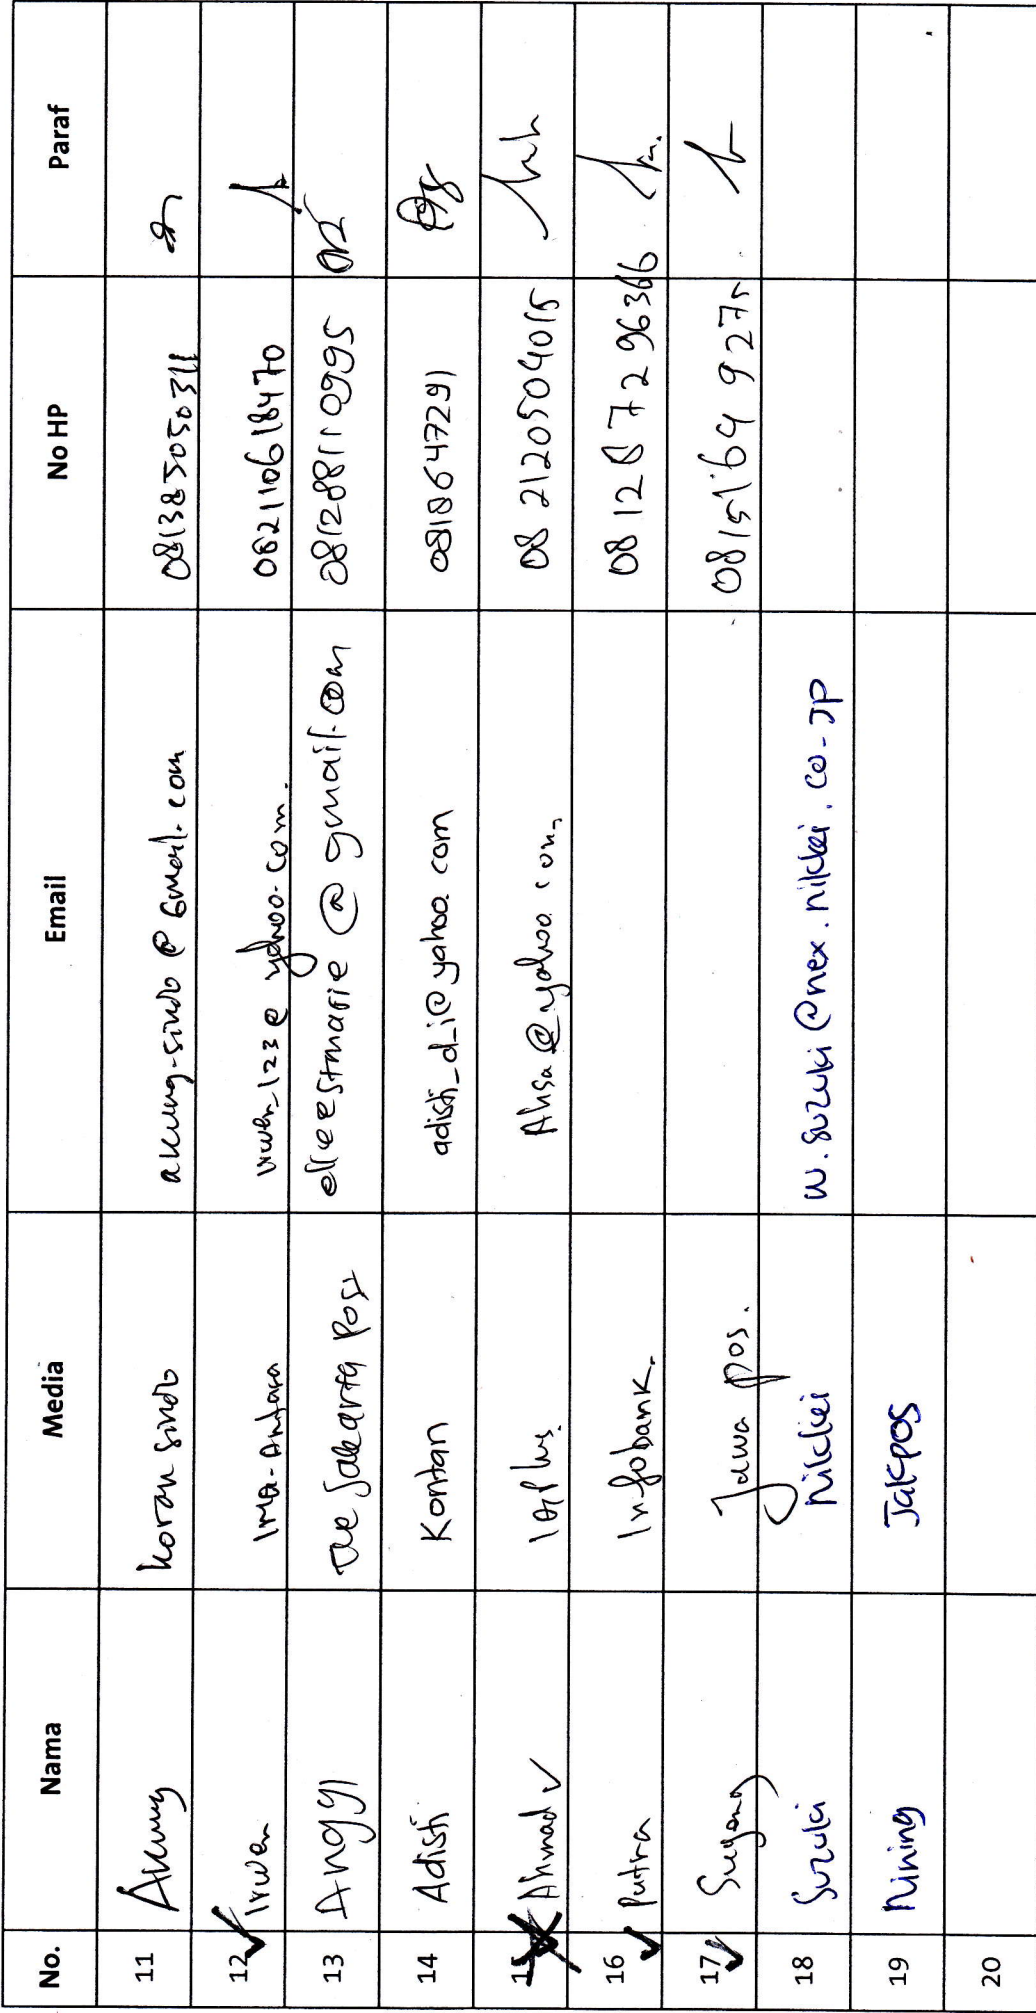 No. Nama Media Email No HP Paraf
11 Akung Koran Sindo akung-sindo@Gmail.com 081385050311
12 Irwan Ima-Antara irwan_123@yahoo.com. 082110618470
13 Anggi The Jakarta Post elleestmarie@gmail.com 081288110995
14 Adisti Kontan adisti_d_i@yahoo.com 0818647291
15 Ahmad IQPlus. @yahoo.com 082120504015
16 Putra Infobank. 081287296366
17 Sugeng Jawa Pos. 08151649275
18 Suzuki Nikkei w.suzuki@nex.nikkei.co-jp
19 Nining Jakpos
20